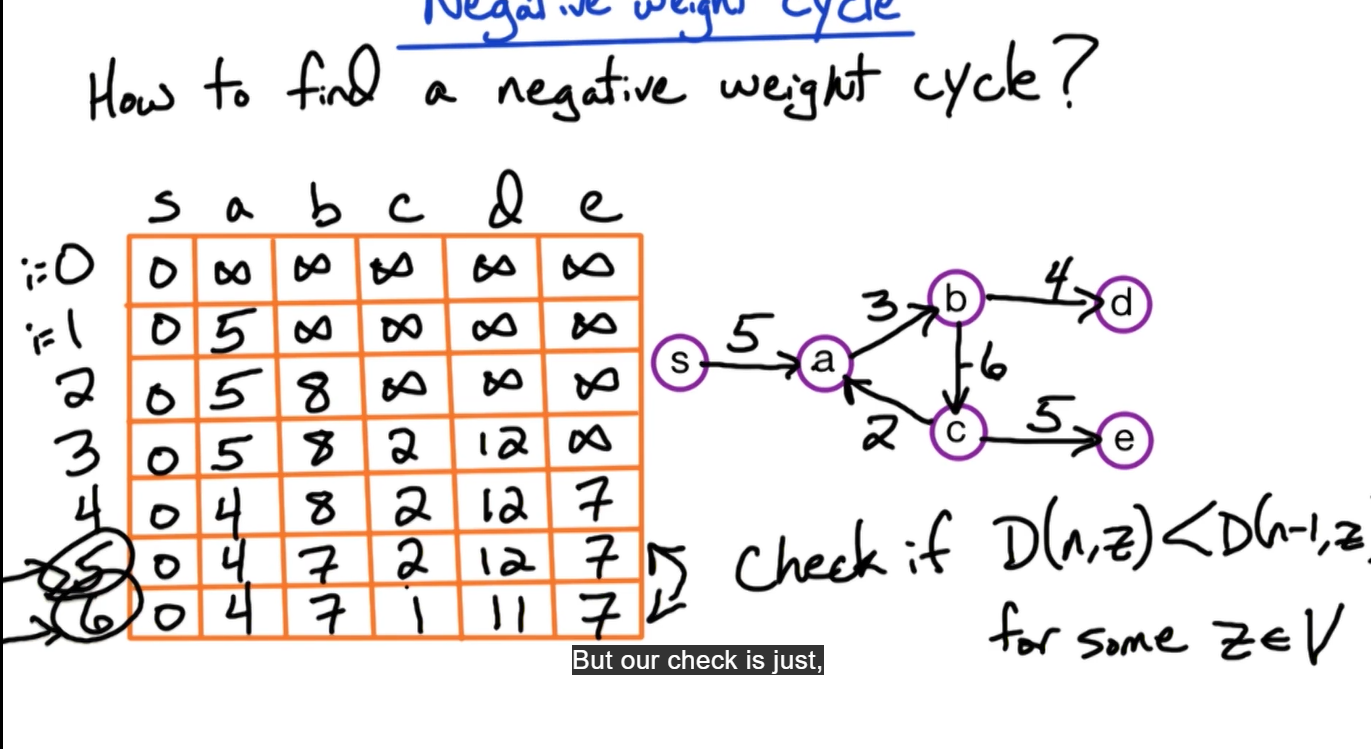 Negative weight cycle
How to find a negative weight cycle?
s a b c d e
i=0 0 ∞ ∞ ∞ ∞ ∞
i=1 0 5 ∞ ∞ ∞ ∞
2 0 5 8 ∞ ∞ ∞
3 0 5 8 2 12 ∞
4 0 4 8 2 12 7
5 0 4 7 2 12 7
6 0 4 7 1 11 7
s 5 a 3 b 4 d
-6
2 c 5 e
Check if D(n,z)<D(n-1,z
for some z∈V
But our check is just,